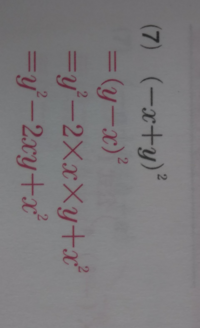 (7) (−x+y)²
=(y−x)²
=y²−2×x×y+x²
=y²−2xy+x²